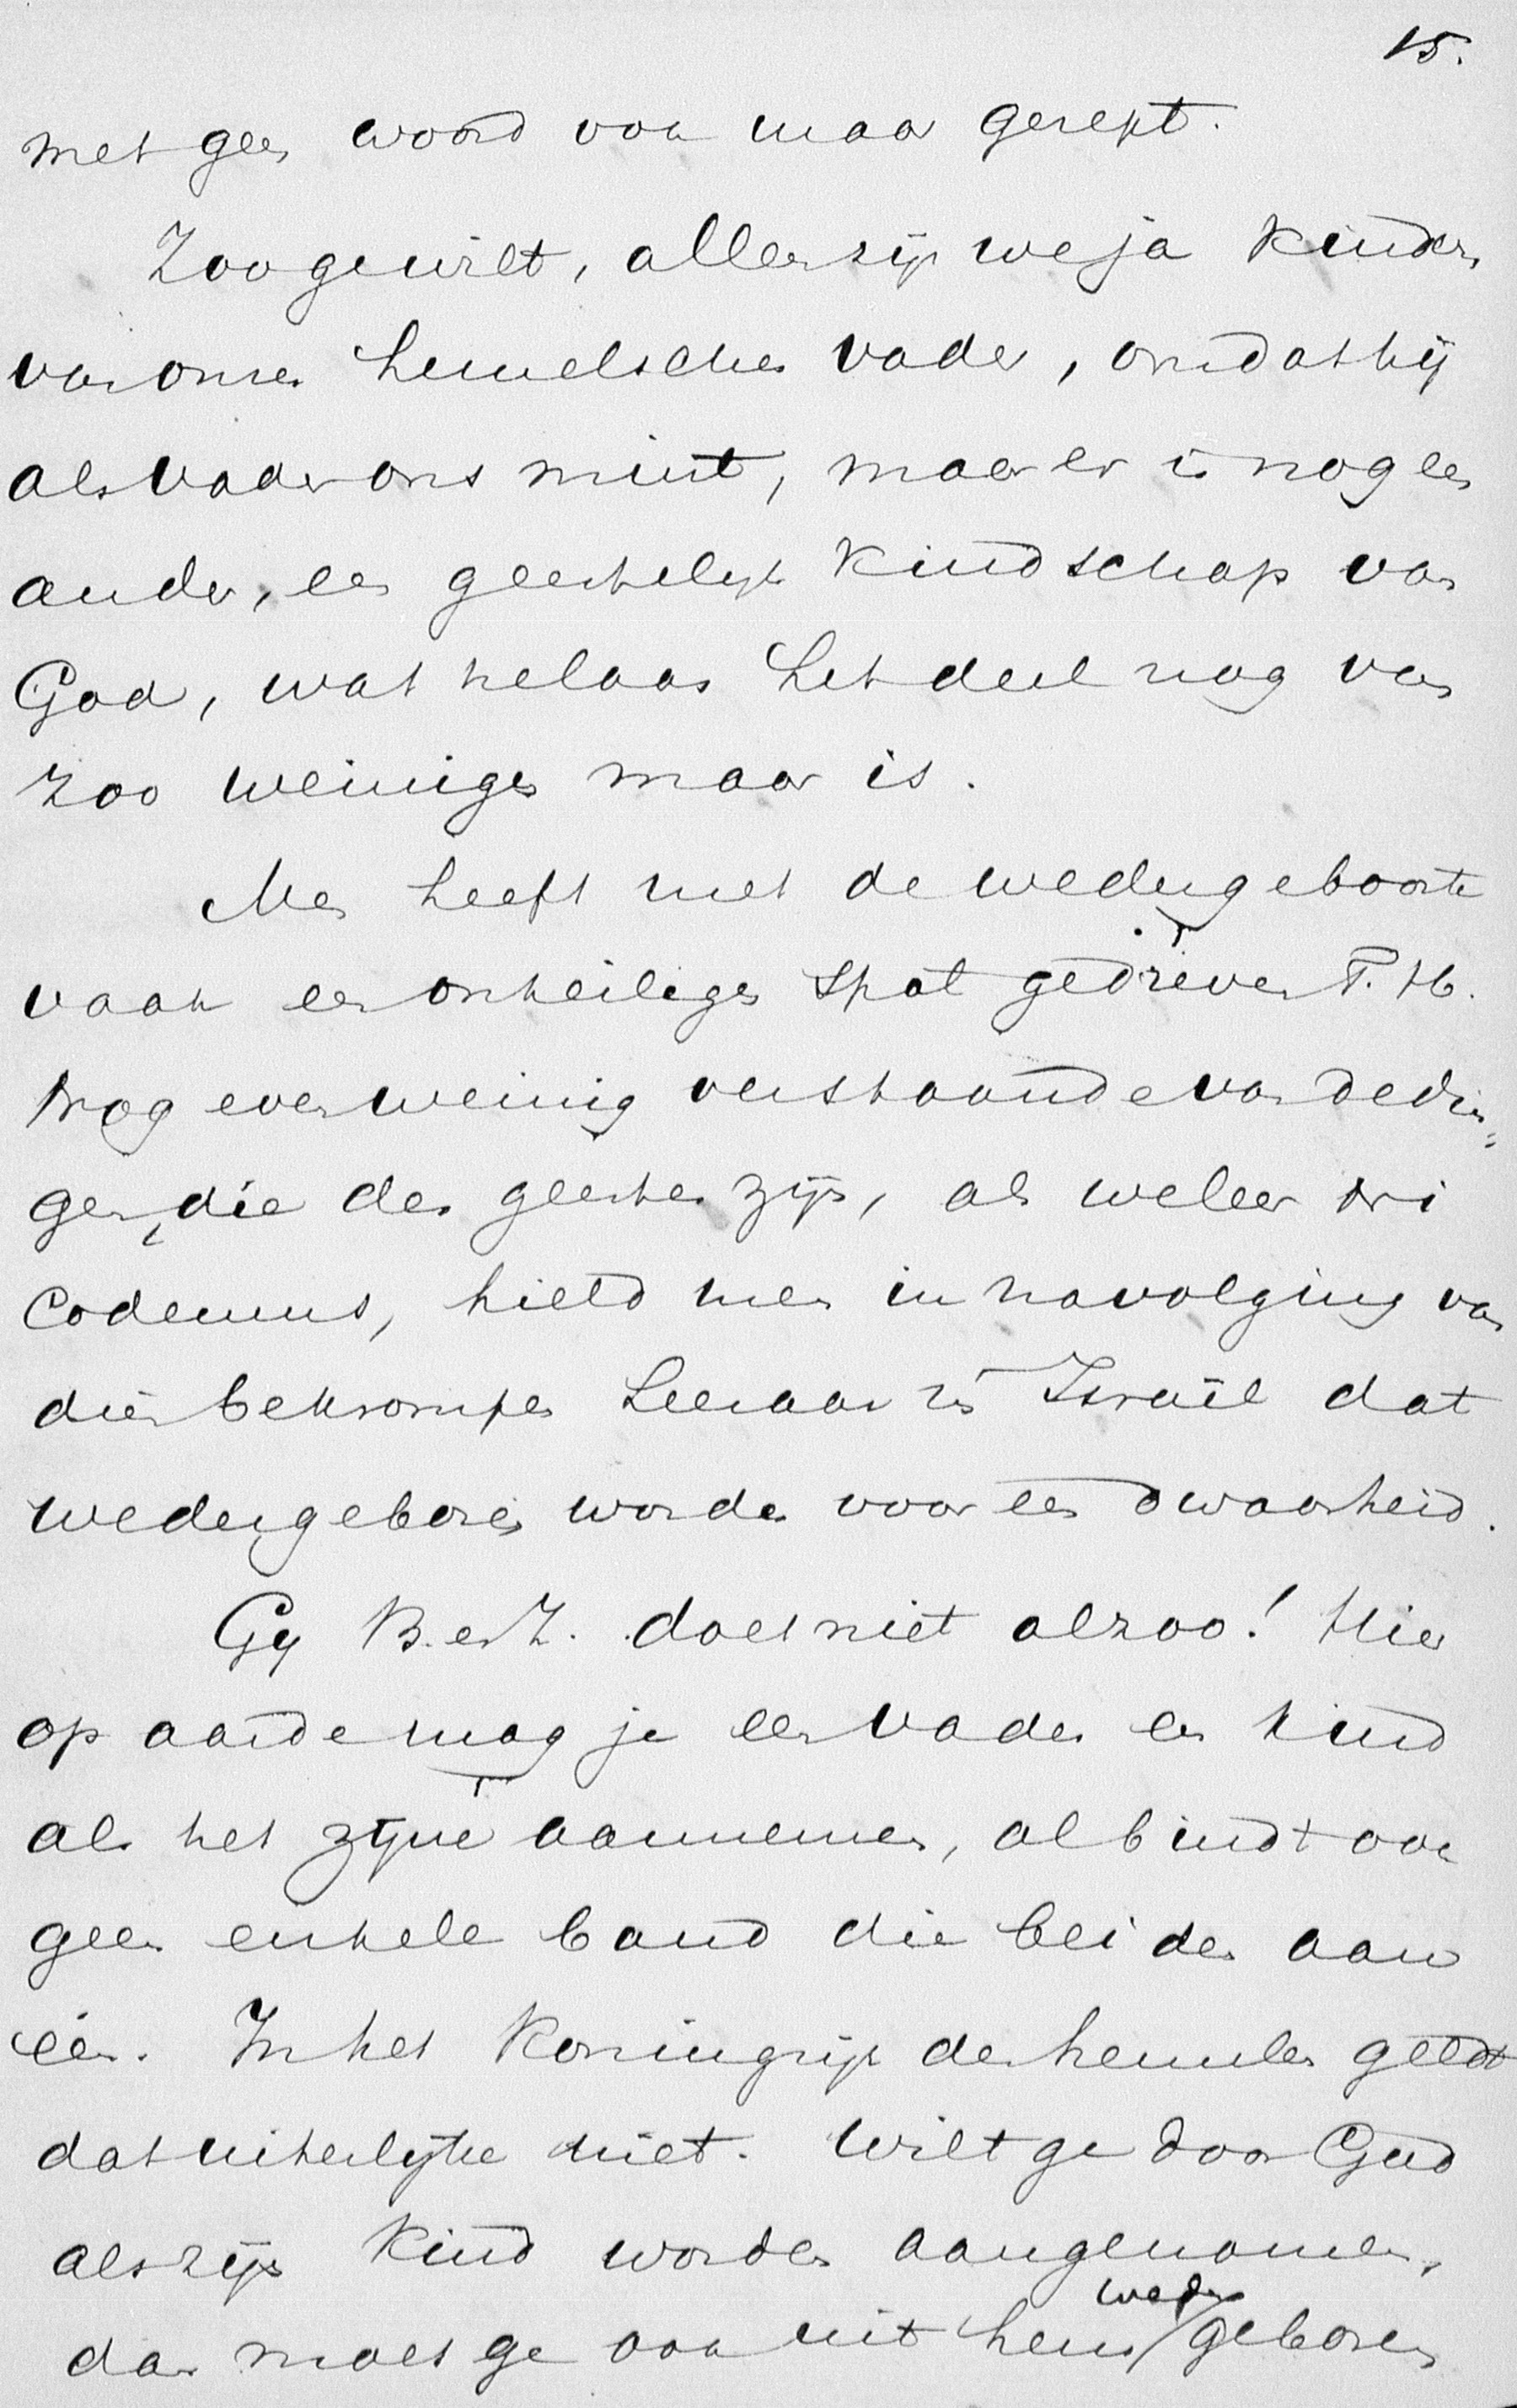 15.
met geen woord ook maar gerept.
Zoo gewilt, allen zijn we ja kinderen
van onzen hemelschen vader, omdat hij
als vader ons mint, maar er is nog een
ander, een geestelijk kindschap van
God, wat helaas het deel nog van
zoo weinigen maar is.
Men heeft met de wedergeboorte
vaak een onheiligen spot gedreven T. H.
Nog even weinig verstaande van de din„
gen, die des geestes zijn, als weleer Ni
codemus, hield men in navolging van
dien bekrompen Leeraar in Israël dat
wedergeboren worden voor een dwaasheid.
Gij B. en Z. doet niet alzoo! Hier
op aarde mag ja een vader een kind
als het zijne aannemen, al bindt ook
geen enkele band die beiden aan
één. In het Koningrijk der hemelen geldt
dat uiterlijke niet. Wilt ge door God
als zijn kind worden aangenomen,
dan moet ge ook uit hem weder geboren